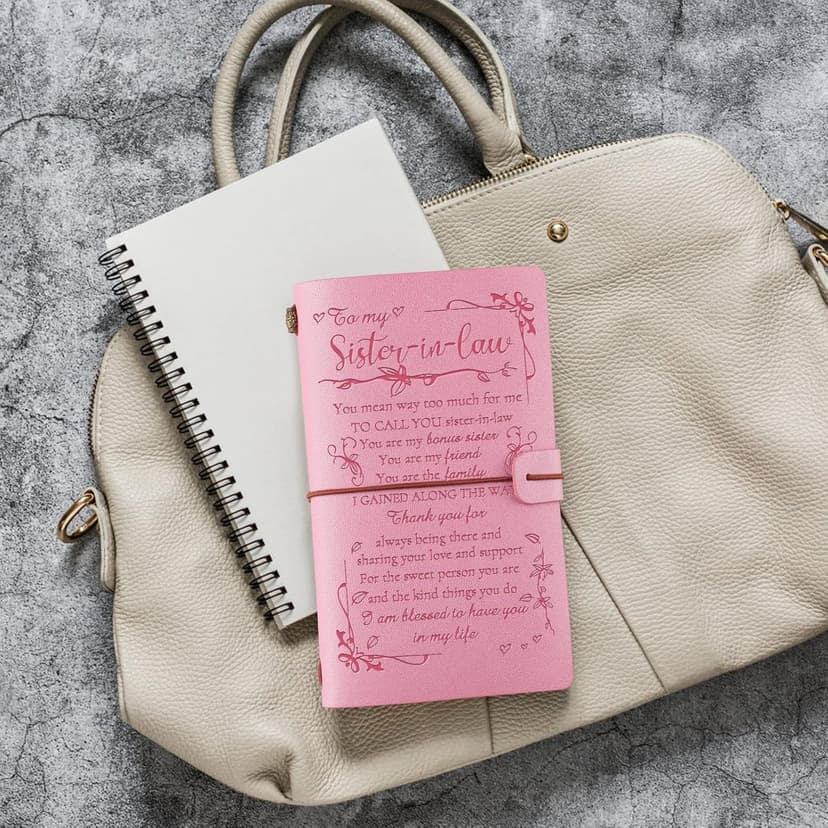 To my
Sister-in-law
You mean way too much for me
TO CALL YOU sister-in-law
You are my bonus sister
You are my friend
You are the family
I GAINED ALONG THE WAY
Thank you for
always being there and
sharing your love and support
For the sweet person you are
and the kind things you do
I am blessed to have you
in my life